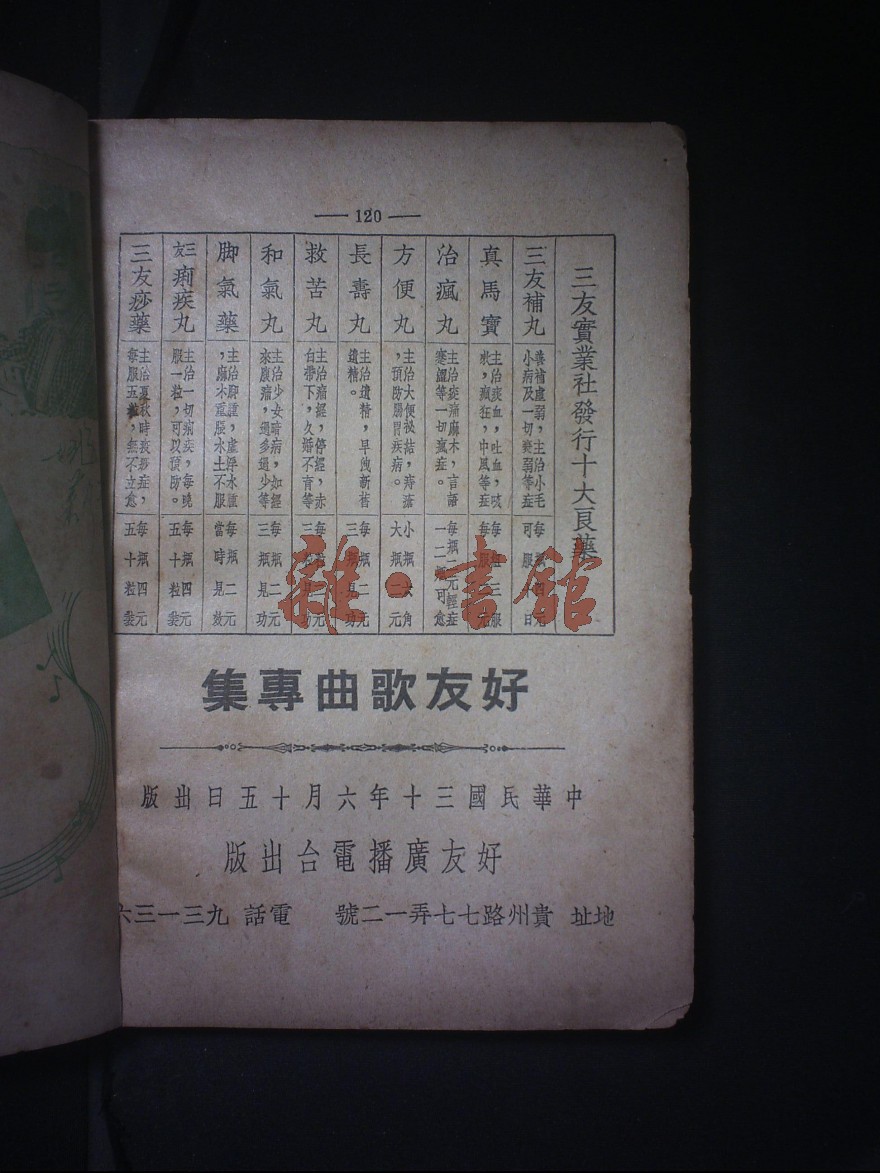 120
三友實業社發行十大良藥
三友補丸
養補虛弱，主治小毛
小病及一切衰弱等症
每瓶四元
可服十日
真馬寶
主治痰血，吐血，咳
嗽，瘋狂，中風等症
治瘋丸
主治痠痛麻木，言語
蹇澀等一切瘋症。
每瓶二元輕症
一二瓶可愈
方便丸
主治大便秘結，痔瘡
，預防腸胃疾病。
小瓶六角
大瓶二元
長壽丸
主治遺精，早洩新舊
遺精。
每瓶二元
三瓶見功
救苦丸
主治痛經，停經，赤
白帶下，久婚不育等
每瓶二元
三瓶見功
和氣丸
主治少女暗病，如經
來腹痛，過多過少等
每瓶二元
三瓶見功
脚氣藥
主治脚腫，虛浮水腫
，麻木重腿水土不服
每瓶二元
當時見效
三友痢疾丸
主治一切痢疾，每晚
服一粒，可以預防。
每瓶四元
五十粒裝
三友痧藥
主治夏秋時痰痧症，
每服五粒，無不立愈
每瓶四元
五十粒裝
雜·書館
好友歌曲專集
中華民國三十年六月十五日出版
好友廣播電台出版
地址 貴州路七七弄一二號 電話 九三一三六